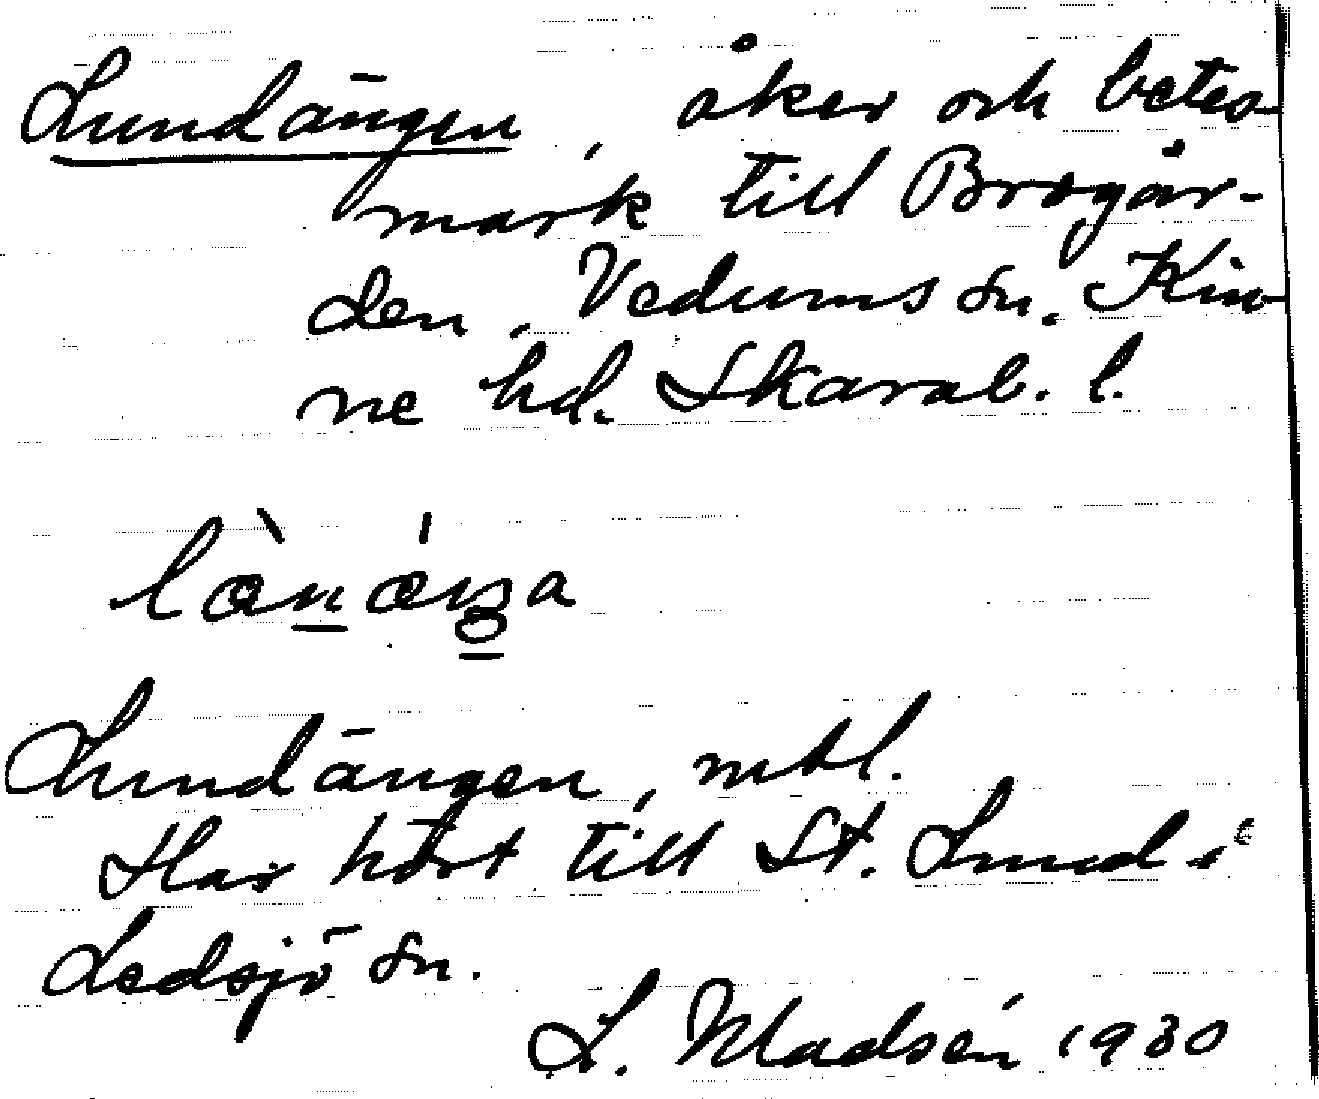 Lundängen, åker och betes-
mark till Brogår-
den, Vedums sn. Kin-
ne hd. Skarab. l.
Lundängen, mtl.
Har hört till St. Lund i
Ledsjö sn.
L. Madsén 1930